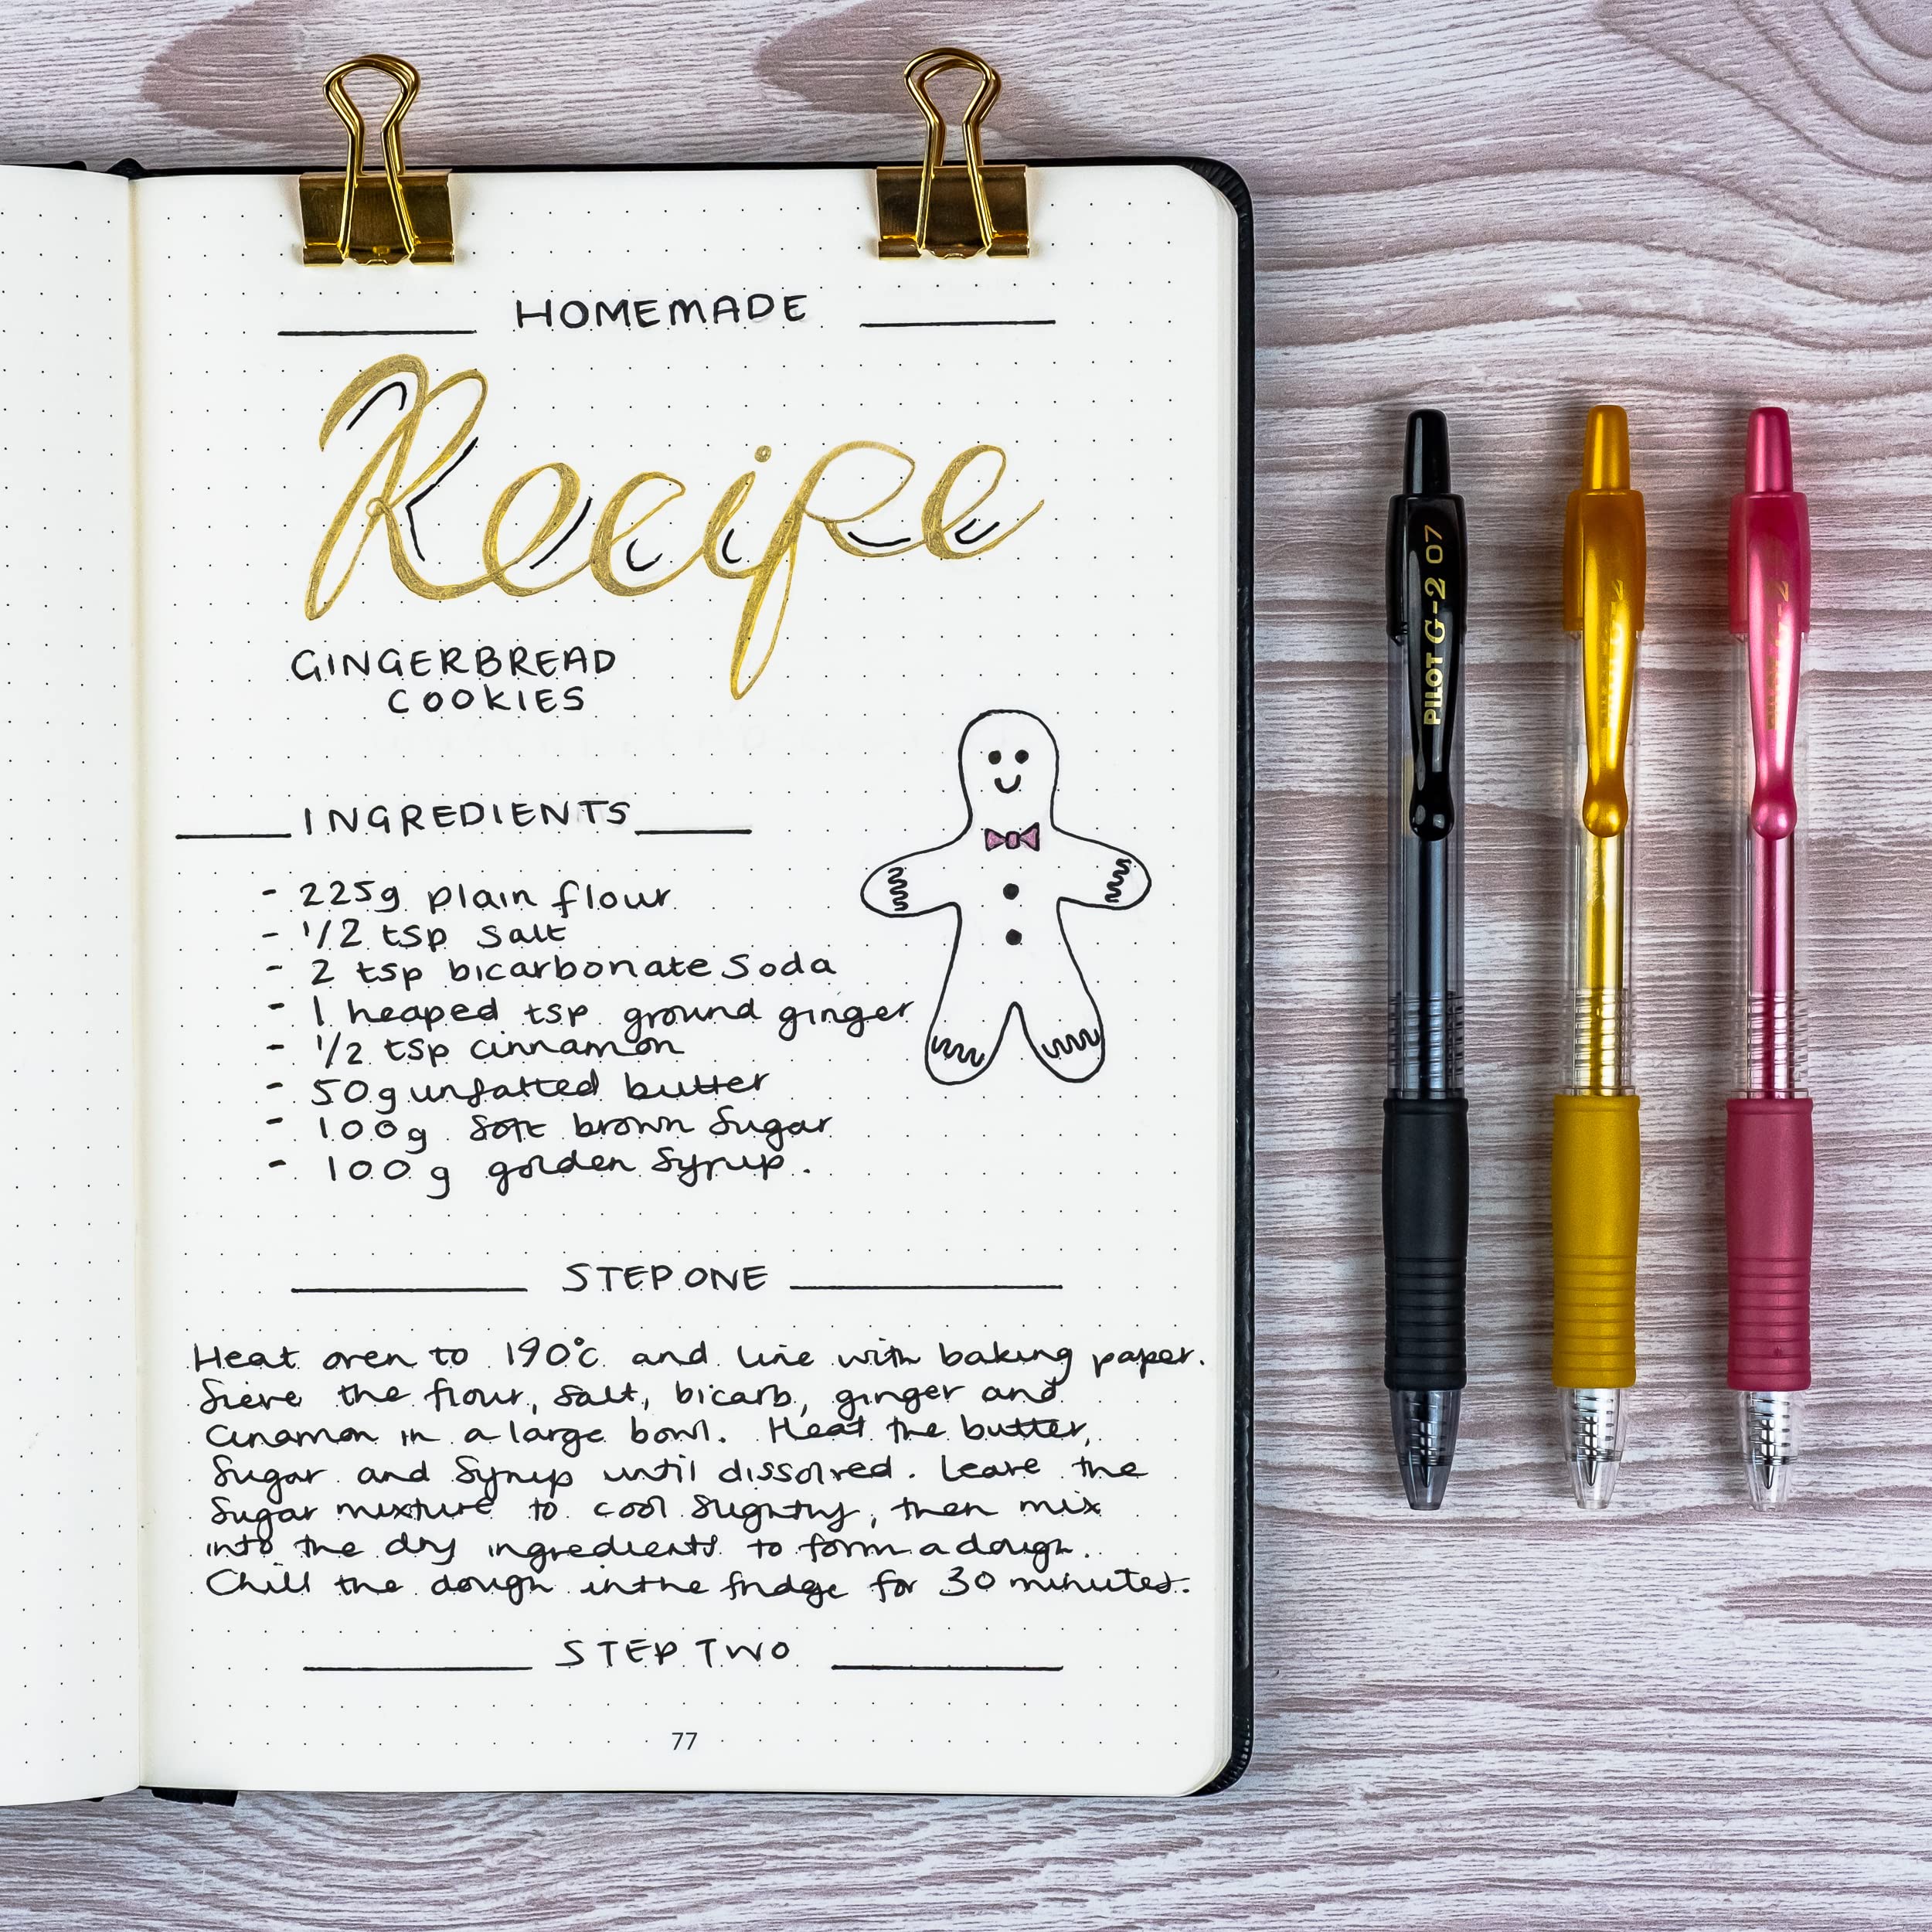 HOMEMADE
Recipe
GINGERBREAD
COOKIES
INGREDIENTS
- 225g plain flour
- 1/2 tsp salt
- 2 tsp bicarbonate Soda
- 1 heaped tsp ground ginger
- 1/2 tsp cinnamon
- 50g unsalted butter
- 100g soft brown Sugar
- 100g golden Syrup.
STEP ONE
Heat oven to 190°c and line with baking paper.
Sieve the flour, salt, bicarb, ginger and
cinamon in a large bowl. Heat the butter,
Sugar and Syrup until dissolved. Leave the
Sugar mixture to cool slightly, then mix
into the dry ingredients to form a dough.
Chill the dough in the fridge for 30 minutes.
STEP TWO
77
PILOT G-2 07
PILOT G-2
PILOT G-2